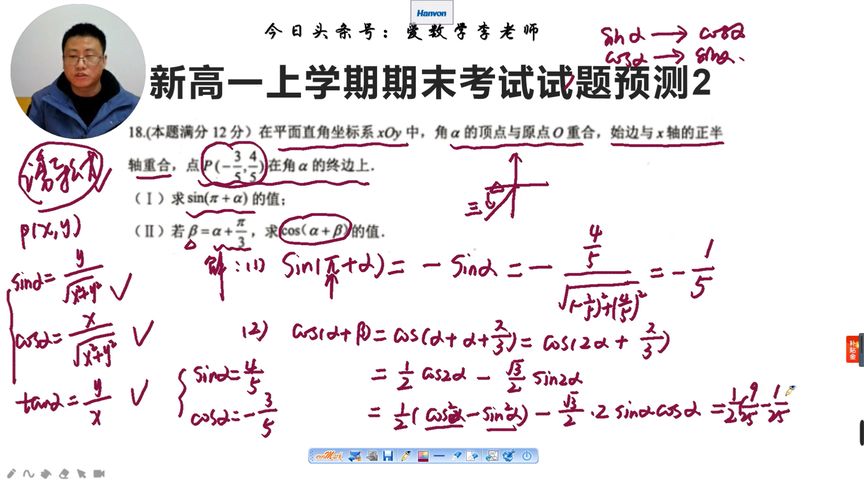 Hanvon
今日头条号：爱数学李老师
sinα → cosα
cosα → sinα.
新高一上学期期末考试试题预测2
18.(本题满分 12 分) 在平面直角坐标系 xOy 中，角 α 的顶点与原点 O 重合，始边与 x 轴的正半
轴重合，点 P(-3/5, 4/5) 在角 α 的终边上.
(Ⅰ) 求 sin(π+α) 的值；
(Ⅱ) 若 β=α+π/3，求 cos(α+β) 的值.
三
P(x,y)
sinα = y/√x²+y² ✓
cosα = x/√x²+y² ✓
tanα = y/x ✓
解：(1) sin(π+α) = -sinα = - 4/5 / √(-3/5)²+(4/5)² = - 1/5
(2) cos(α+β) = cos(α+α+π/3) = cos(2α+π/3)
sinα = 4/5
cosα = -3/5
= 1/2 cos2α - √3/2 sin2α
= 1/2 (cos²α - sin²α) - √3/2 · 2 sinαcosα = 1/2(9/25 - 1/25
补贴金